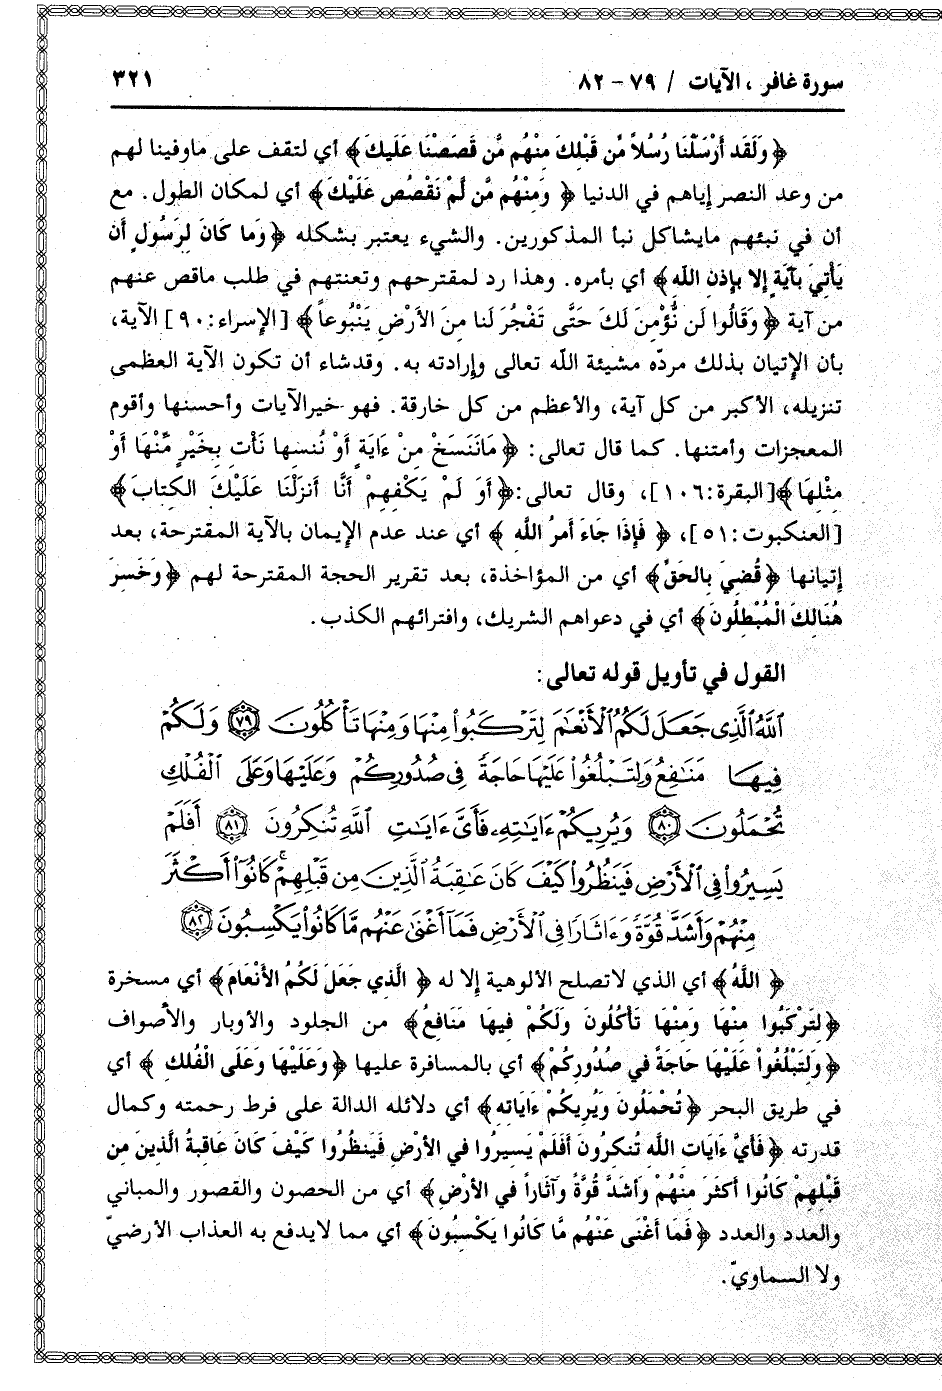 سورة غافر ، الآيات / ٧٩ - ٨٢
٣٢١
﴿ وَلَقَد أَرْسَلْنَا رُسُلاً مِّن قَبْلِكَ مِنْهُم مَّن قَصَصْنَا عَلَيكَ﴾ أي لتقف على ماوفينا لهم
من وعد النصر إياهم في الدنيا ﴿ وَمِنْهُم مَّن لَّمْ نَقْصُص عَلَيْكَ﴾ أي لمكان الطول. مع
أن في نبئهم مايشاكل نبأ المذكورين. والشيء يعتبر بشكله ﴿وَمَا كَانَ لِرَسُولٍ أَن
يَأْتِيَ بِآيَةٍ إلا بِإذنِ اللَّهِ﴾ أي بأمره. وهذا رد لمقترحهم وتعنتهم في طلب ماقص عنهم
من آية ﴿وَقَالُوا لَن نُّؤْمِنَ لَكَ حَتَّى تَفْجُرَ لَنا مِنَ الأَرْضِ يَنْبُوعاً﴾ [الإسراء:٩٠] الآية،
بأن الإتيان بذلك مردّه مشيئة اللّه تعالى وإرادته به. وقدشاء أن تكون الآية العظمى
تنزيله، الأكبر من كل آية، والأعظم من كل خارقة. فهو خيرالآيات وأحسنها وأقوم
المعجزات وأمتنها. كما قال تعالى: ﴿مَانَنسَخْ مِنْ ءَايَةٍ أَوْ نُنسها نَأْت بِخَيْرٍ مِّنْهَا أَوْ
مثْلِهَا﴾[البقرة:١٠٦]، وقال تعالى:﴿أَوَ لَمْ يَكْفِهِمْ أَنَّا أَنزَلْنَا عَلَيْكَ الكِتابَ﴾
[العنكبوت:٥١]، ﴿ فَإِذَا جَاءَ أَمرُ اللَّه ﴾ أي عند عدم الإيمان بالآية المقترحة، بعد
إتيانها ﴿قُضِيَ بِالحَقِّ﴾ أي من المؤاخذة، بعد تقرير الحجة المقترحة لهم ﴿وَخَسِرَ
هُنَالِكَ الْمُبْطِلُونَ﴾ أي في دعواهم الشريك، وافترائهم الكذب.
القول في تأويل قوله تعالى:
ٱللَّهُ ٱلَّذِى جَعَلَ لَكُمُ ٱلْأَنْعَٰمَ لِتَرْكَبُوا۟ مِنْهَا وَمِنْهَا تَأْكُلُونَ ٧٩ وَلَكُمْ
فِيهَا مَنَٰفِعُ وَلِتَبْلُغُوا۟ عَلَيْهَا حَاجَةً فِى صُدُورِكُمْ وَعَلَيْهَا وَعَلَى ٱلْفُلْكِ
تُحْمَلُونَ ٨٠ وَيُرِيكُمْ ءَايَٰتِهِۦ فَأَىَّ ءَايَٰتِ ٱللَّهِ تُنكِرُونَ ٨١ أَفَلَمْ
يَسِيرُوا۟ فِى ٱلْأَرْضِ فَيَنظُرُوا۟ كَيْفَ كَانَ عَٰقِبَةُ ٱلَّذِينَ مِن قَبْلِهِمْ ۚ كَانُوٓا۟ أَكْثَرَ
مِنْهُمْ وَأَشَدَّ قُوَّةً وَءَاثَارًا فِى ٱلْأَرْضِ فَمَآ أَغْنَىٰ عَنْهُم مَّا كَانُوا۟ يَكْسِبُونَ ٨٢
﴿ اللَّهُ﴾ أي الذي لاتصلح الألوهية إلا له ﴿ الَّذي جَعَلَ لَكُمُ الأَنْعَامَ﴾ أي مسخرة
﴿لِتَرْكَبُوا مِنْهَا وَمِنْهَا تَأْكُلُونَ وَلَكُمْ فِيهَا مَنَافِعُ﴾ من الجلود والأوبار والأصواف
﴿وَلِتَبْلُغُواْ عَلَيْهَا حَاجَةً في صُدُورِكُمْ﴾ أي بالمسافرة عليها ﴿وَعَلَيْهَا وَعَلَى الْفُلك ﴾ أي
في طريق البحر ﴿تُحْمَلُونَ وَيُرِيكُمْ ءَايَاته﴾ أي دلائله الدالة على فرط رحمته وكمال
قدرته ﴿فَأَيَّ ءَايَات اللَّه تُنكِرُونَ أَفَلَمْ يَسيرُوا في الأَرْضِ فَيَنظُرُوا كَيْفَ كَانَ عَاقِبَةُ الَّذين مِن
قَبْلِهِمْ كَانُوا أَكثَرَ مِنْهُمْ وَأَشَدَّ قُوَّةً وَآثَاراً في الأَرْضِ﴾ أي من الحصون والقصور والمباني
والعدد والعدد ﴿فَمَا أَغْنَى عَنْهُم مَّا كَانُوا يَكْسِبُونَ﴾ أي مما لايدفع به العذاب الأرضيّ
ولا السماويّ.